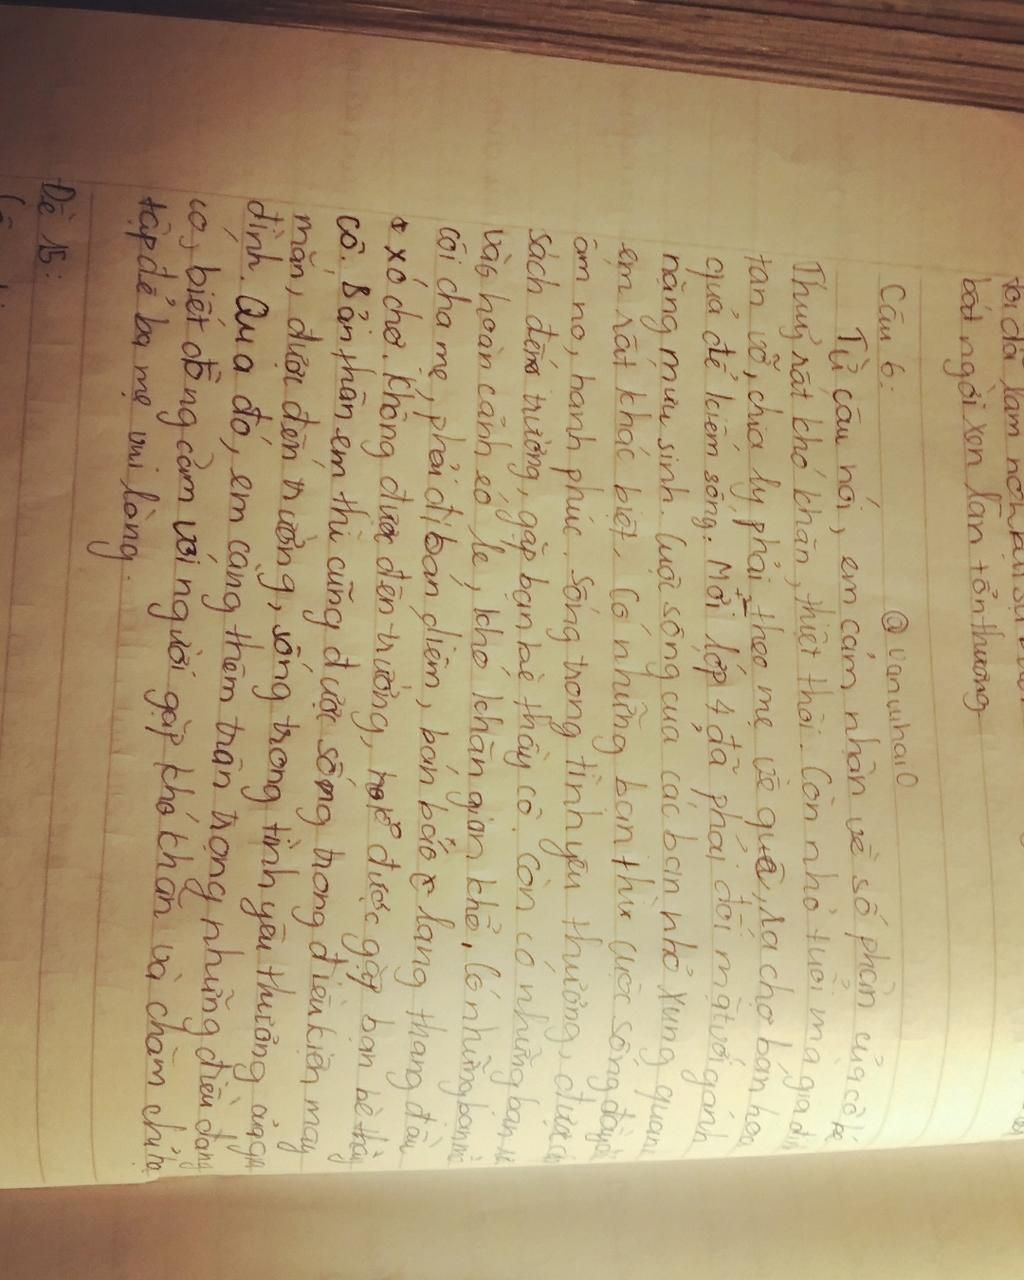 tôi đã làm
bớt ngời xen lẫn tổn thương
@vanunhaiO
Câu 6:
Từ câu nói, em cảm nhận về số phận của cô bé
Thuỷ rất khó khăn, thiệt thòi. Còn nhỏ tuổi mà gia đì
tan vỡ, chia ly phải theo mẹ về quê, ra chợ bán hoa
quả để kiếm sống. Mới lớp 4 đã phải đối mặt với gánh
nặng mưu sinh. Cuộc sống của các bạn nhỏ xung quanh
em rất khác biệt. Có những bạn thì cuộc sống đầy đủ
ấm no, hạnh phúc. Sống trong tình yêu thương, được
sách đến trường, gặp bạn bè thầy cô. Còn có những bạn
vào hoàn cảnh éo le, khó khăn gian khổ. Có những bạn mồ
côi cha mẹ, phải đi bán diêm, bán báo lang thang đầu
xó chợ. Không được đến trường, được gặp bạn bè thầy
cô. Bản thân em thì cũng được sống trong điều kiện may
mắn, được đến trường, sống trong tình yêu thương của gia
đình. Qua đó, em càng thêm trân trọng những điều đang
có, biết đồng cảm với người gặp khó khăn và chăm chỉ họ
tập để ba mẹ vui lòng.
Đề 15: